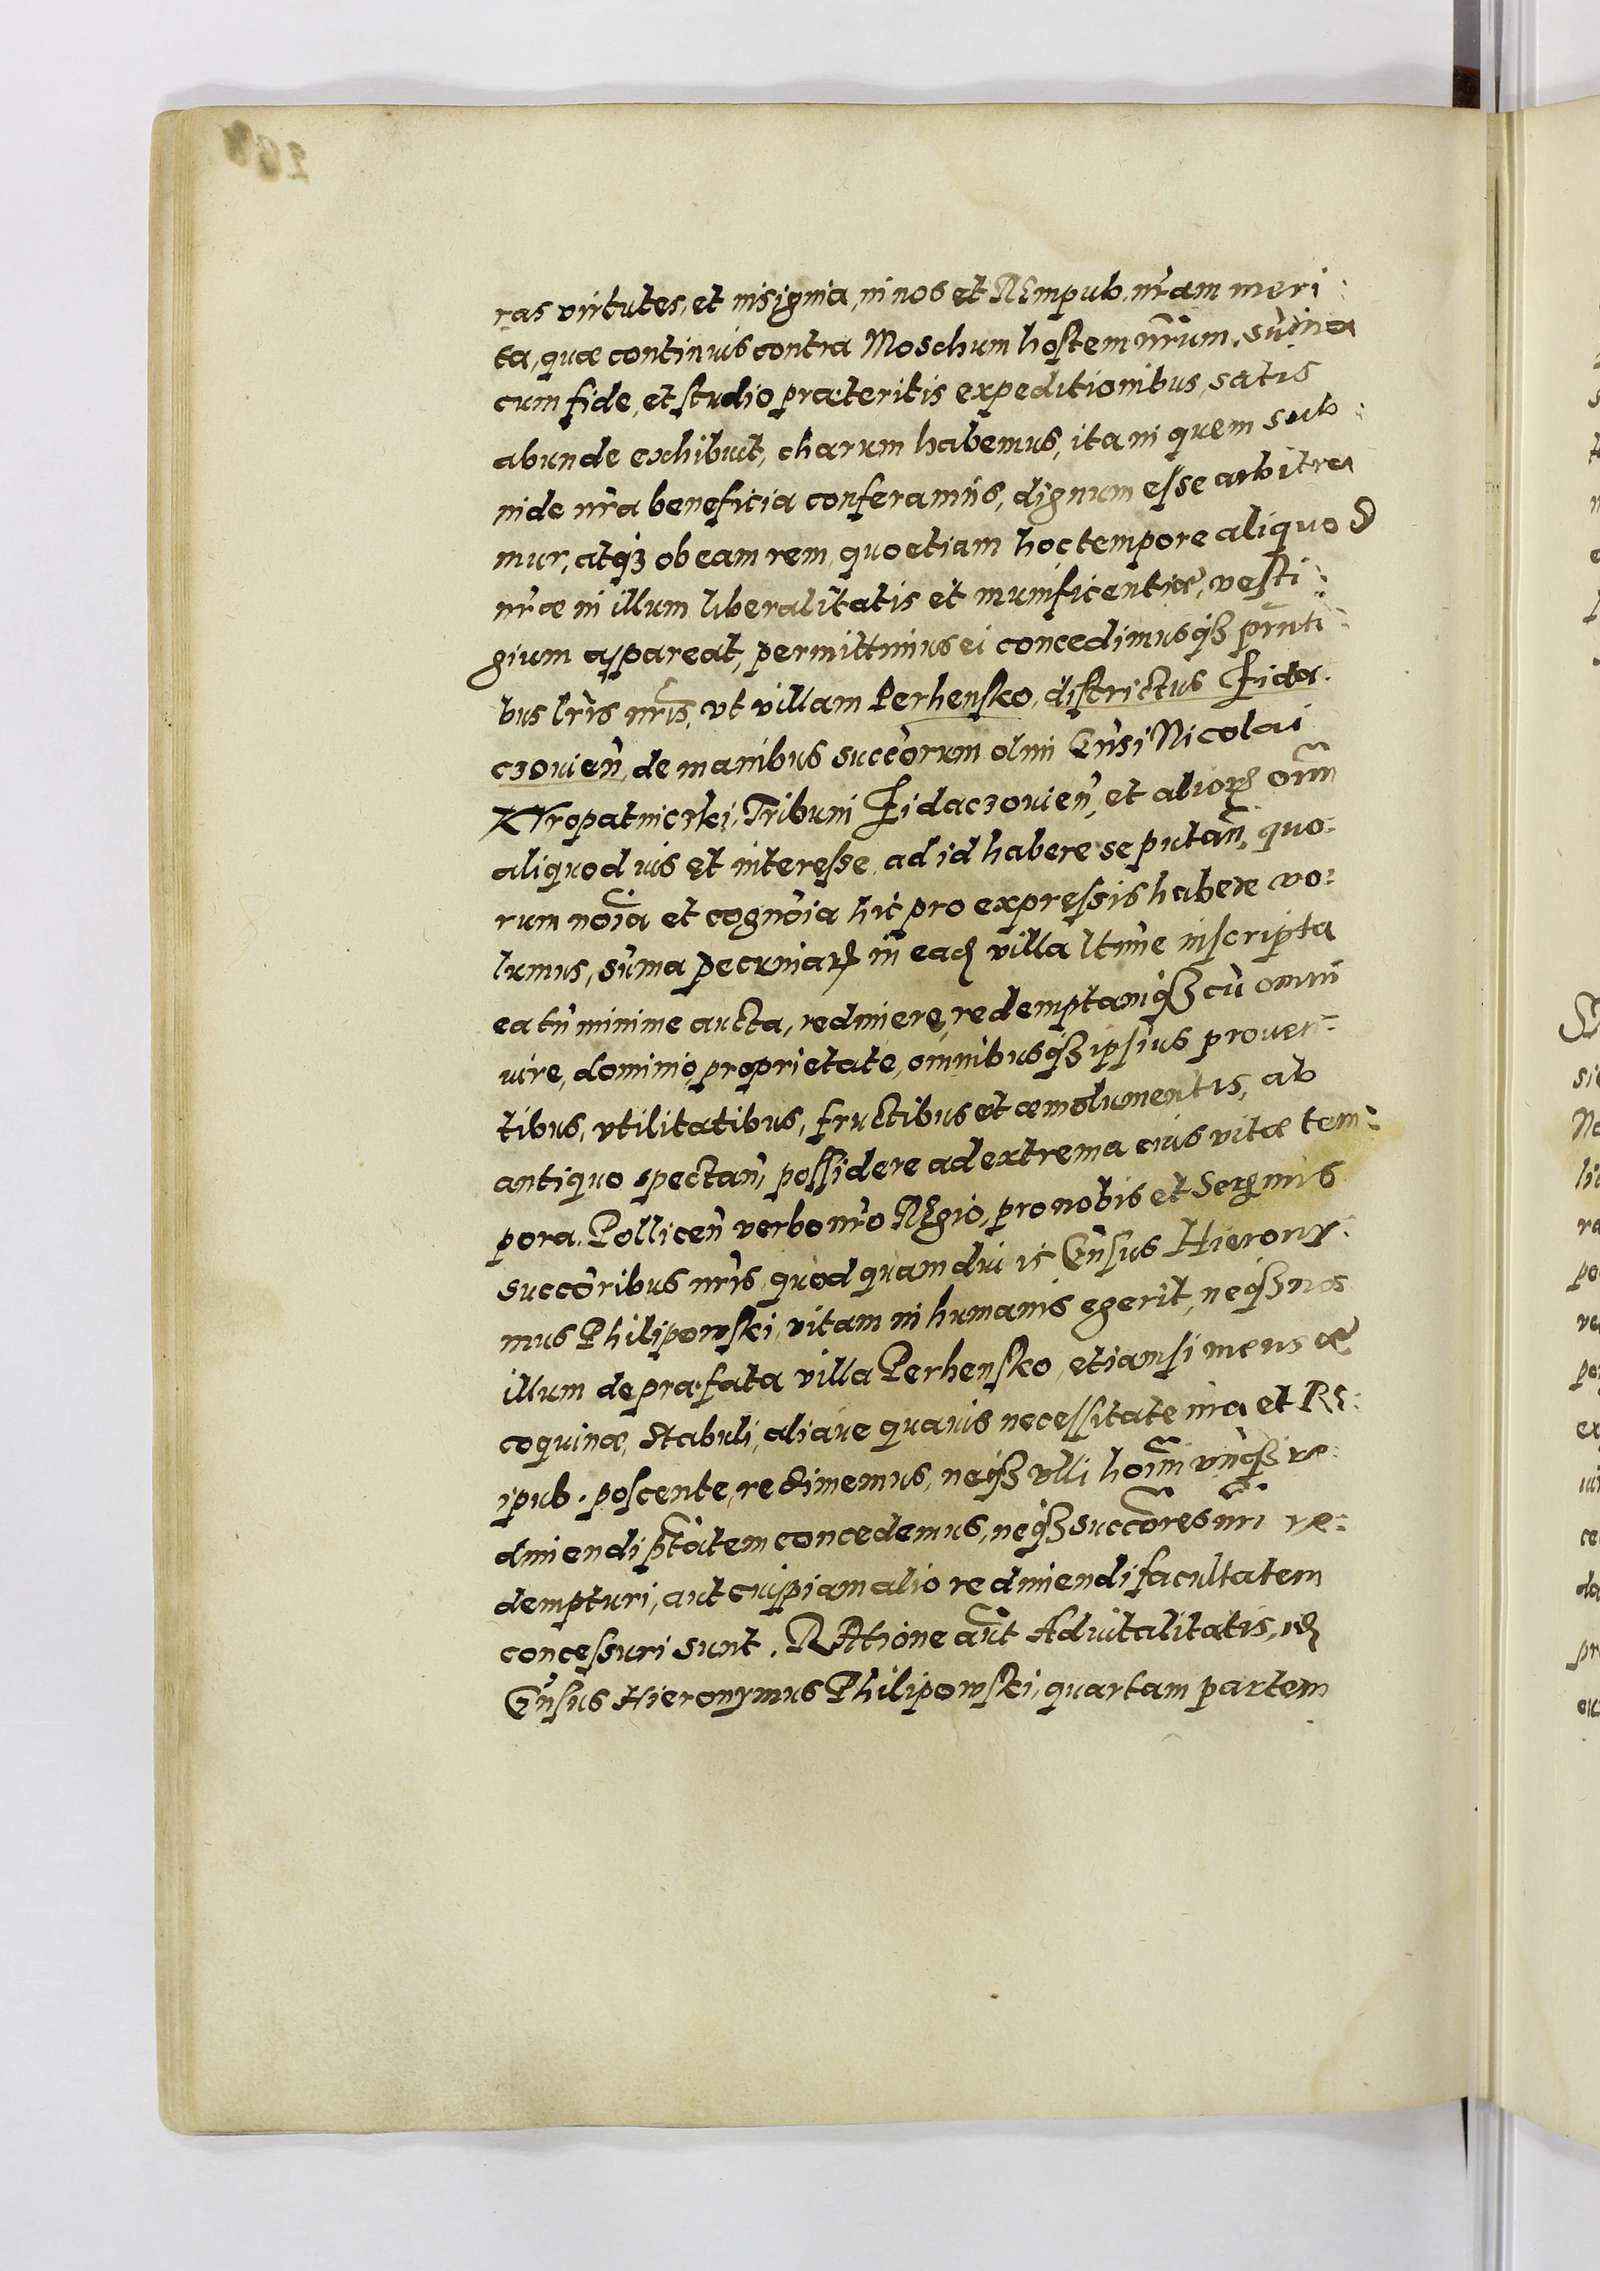 ras virtutes, et insignia, in nos et REmpub. nr̃am meri:
ta, quæ continuis contra Moschum hostem nr̃um, sum̃a
cum fide, et studio præteritis expeditionibus, satis
abunde exhibuit, charum habemus, ita in quem sub:
inde nr̃a beneficia conferamus, dignum esse arbitra
mur, atq3 ob eam rem, quo etiam hoc tempore aliquod
nr̃æ in illum liberalitatis et munificentiæ, vesti:
gium appareat, permittimus ei concedimusq3 pr̃nti:
bus lr̃is nr̃is, vt villam Perhensko, districtus Zida:
c3ouien̄, de manibus succ̃orum olim Gn̄si Nicolai
Kropatnic3ki, Tribuni Zidac3ouien̄, et alior̃ om̃m
aliquod ius et interesse ad id habere se putan̄, quo:
rum noĩa et cognoĩa hic pro expressis habere vo:
lumus, sum̃a pecuniar̃ in ead̃ villa ltim̃e inscripta
ea tn̄ minime aucta, redimere, redemptamq3 cũ omni
iure, dominio, proprietate, omnibusq3 ipsius proven:
tibus, vtilitatibus, fructibus et æmolumentis, ab
antiquo spectan̄, possidere ad extrema eius vitæ tem:
pora. Pollicen̄ verbo nr̃o REgio, pro nobis et Serẽmis
succ̃oribus nr̃is, quod quamdiu is Gn̄sus Hierony:
mus Philipowski, vitam in humanis egerit, neq3 nos
illum de præfata villa Perhensko, etiamsi mensæ
coquinæ, stabuli, aliave quavis necessitate nr̃a et RE:
ipub. poscente, redimemus, neq3 vlli hoĩm vnq3 re:
dimendi ptãtem concedemus, neq3 succ̃ores nr̃i re:
dempturi, aut cuipiam alio redimendi facultatem
concessuri sunt. RAtione aũt Aduitalitatis, id̃
Gn̄sus Hieronymus Philipowski, quartam partem